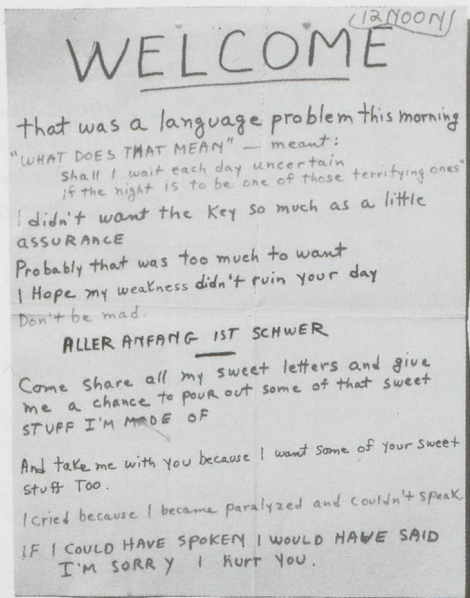 (12 NOON)
WELCOME
that was a language problem this morning
"WHAT DOES THAT MEAN" — meant:
shall I wait each day uncertain
if the night is to be one of those terrifying ones"
I didn't want the key so much as a little
ASSURANCE
Probably that was too much to want
I Hope my weakness didn't ruin your day
Don't be mad.
ALLER ANFANG IST SCHWER
Come share all my sweet letters and give
me a chance to pour out some of that sweet
STUFF I'M MADE OF
And take me with you because I want some of your sweet
stuff Too.
I cried because I became paralyzed and couldn't speak
IF I COULD HAVE SPOKEN I WOULD HAVE SAID
I'M SORRY I hurt YOU.